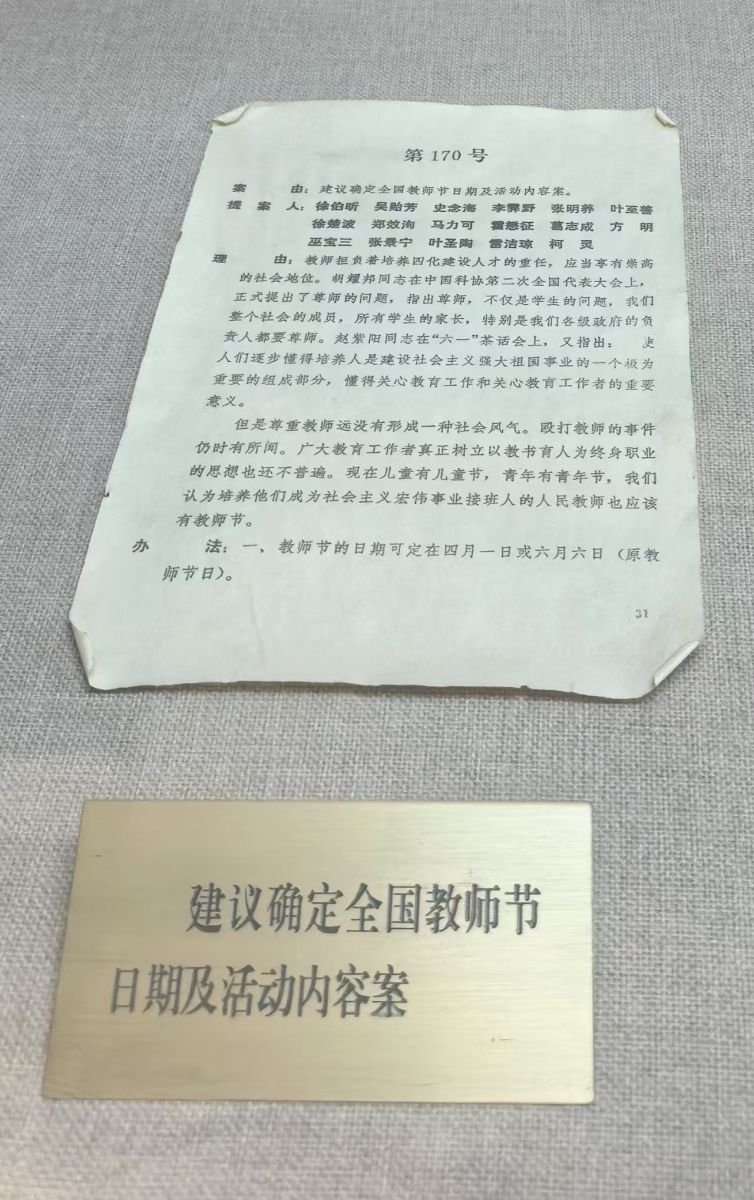 第170号
案　　由：建议确定全国教师节日期及活动内容案。
提 案 人：徐伯昕　吴贻芳　史念海　李霁野　张明养　叶至善
徐楚波　郑效洵　马力可　霍懋征　葛志成　方　明
巫宝三　张景宁　叶圣陶　雷洁琼　柯　灵
理　　由：教师担负着培养四化建设人才的重任，应当享有崇高
的社会地位。胡耀邦同志在中国科协第二次全国代表大会上，
正式提出了尊师的问题，指出尊师，不仅是学生的问题，我们
整个社会的成员，所有学生的家长，特别是我们各级政府的负
责人都要尊师。赵紫阳同志在“六一”茶话会上，又指出：
人们逐步懂得培养人是建设社会主义强大祖国事业的一个极为
重要的组成部分，懂得关心教育工作和关心教育工作者的重要
意义。
但是尊重教师远没有形成一种社会风气。殴打教师的事件
仍时有所闻。广大教育工作者真正树立以教书育人为终身职业
的思想也还不普遍。现在儿童有儿童节，青年有青年节，我们
认为培养他们成为社会主义宏伟事业接班人的人民教师也应该
有教师节。
办　　法：一、教师节的日期可定在四月一日或六月六日（原教
师节日）。
31
建议确定全国教师节
日期及活动内容案